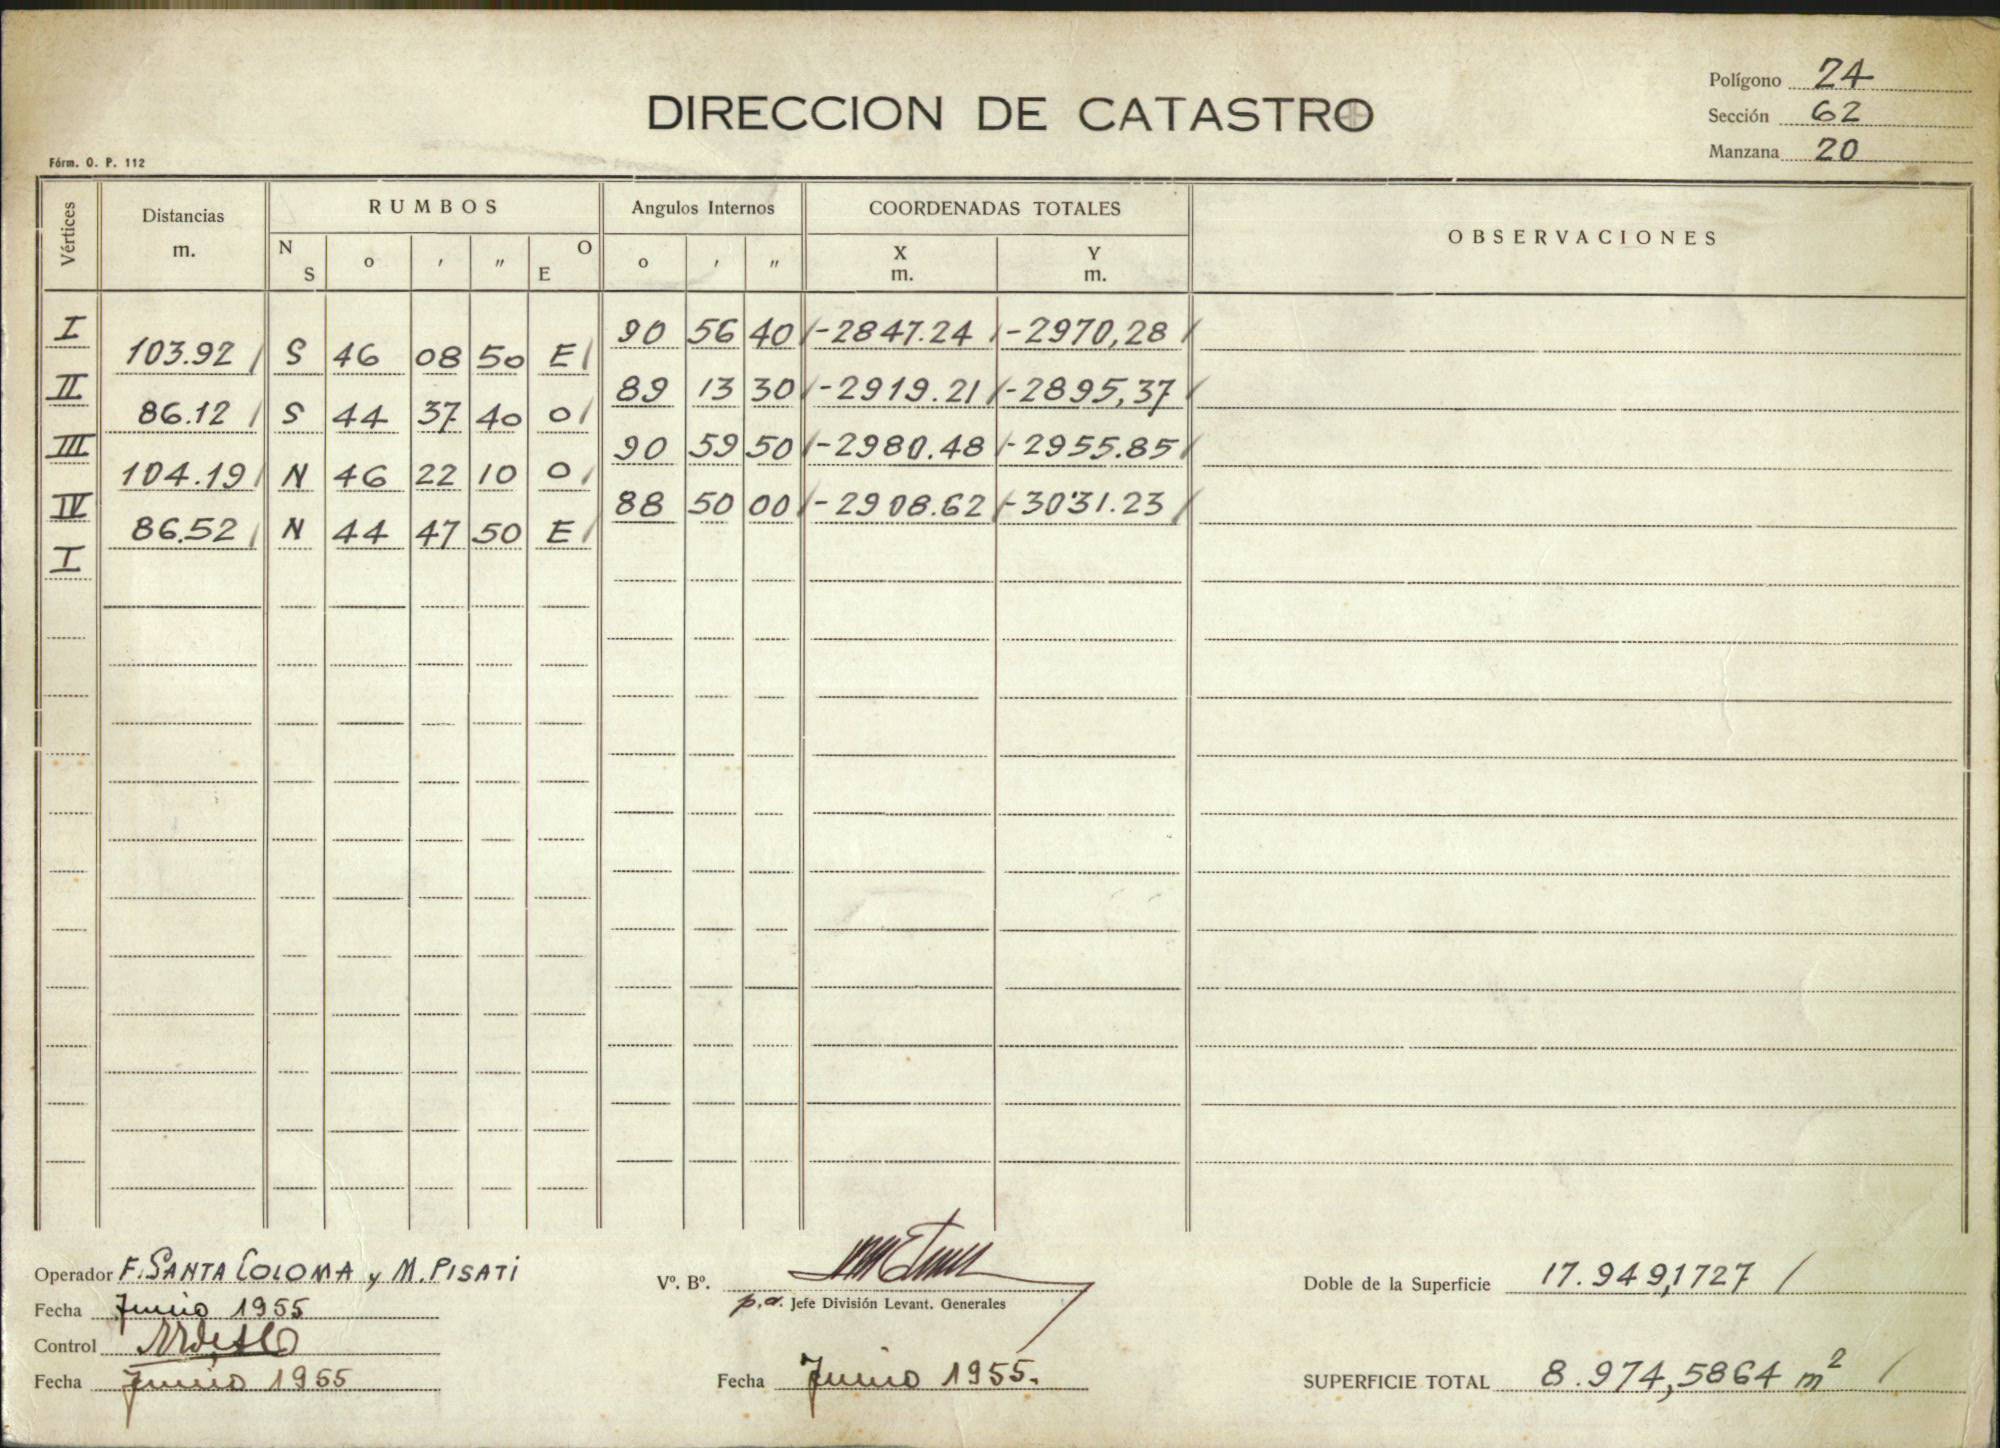 Polígono 24
DIRECCION DE CATASTRO
Sección 62
Manzana 20
Fórm. O. P. 112
Vértices Distancias m. RUMBOS Angulos Internos COORDENADAS TOTALES OBSERVACIONES
N S o ' " O E o ' " X m. Y m.
I 90 56 40 -2847.24 -2970,28
103.92 S 46 08 50 E
II 89 13 30 -2919.21 -2895,37
86.12 S 44 37 40 O
III 90 59 50 -2980.48 -2955.85
104.19 N 46 22 10 O
IV 88 50 00 -2908.62 -3031.23
86.52 N 44 47 50 E
I
Operador F. SANTA COLOMA y M. PISATI
Vº. Bº.
Doble de la Superficie 17.949,1727
p.a. Jefe División Levant. Generales
Fecha Junio 1955
Control
Fecha Junio 1955
Fecha Junio 1955.
SUPERFICIE TOTAL 8.974,5864 m2